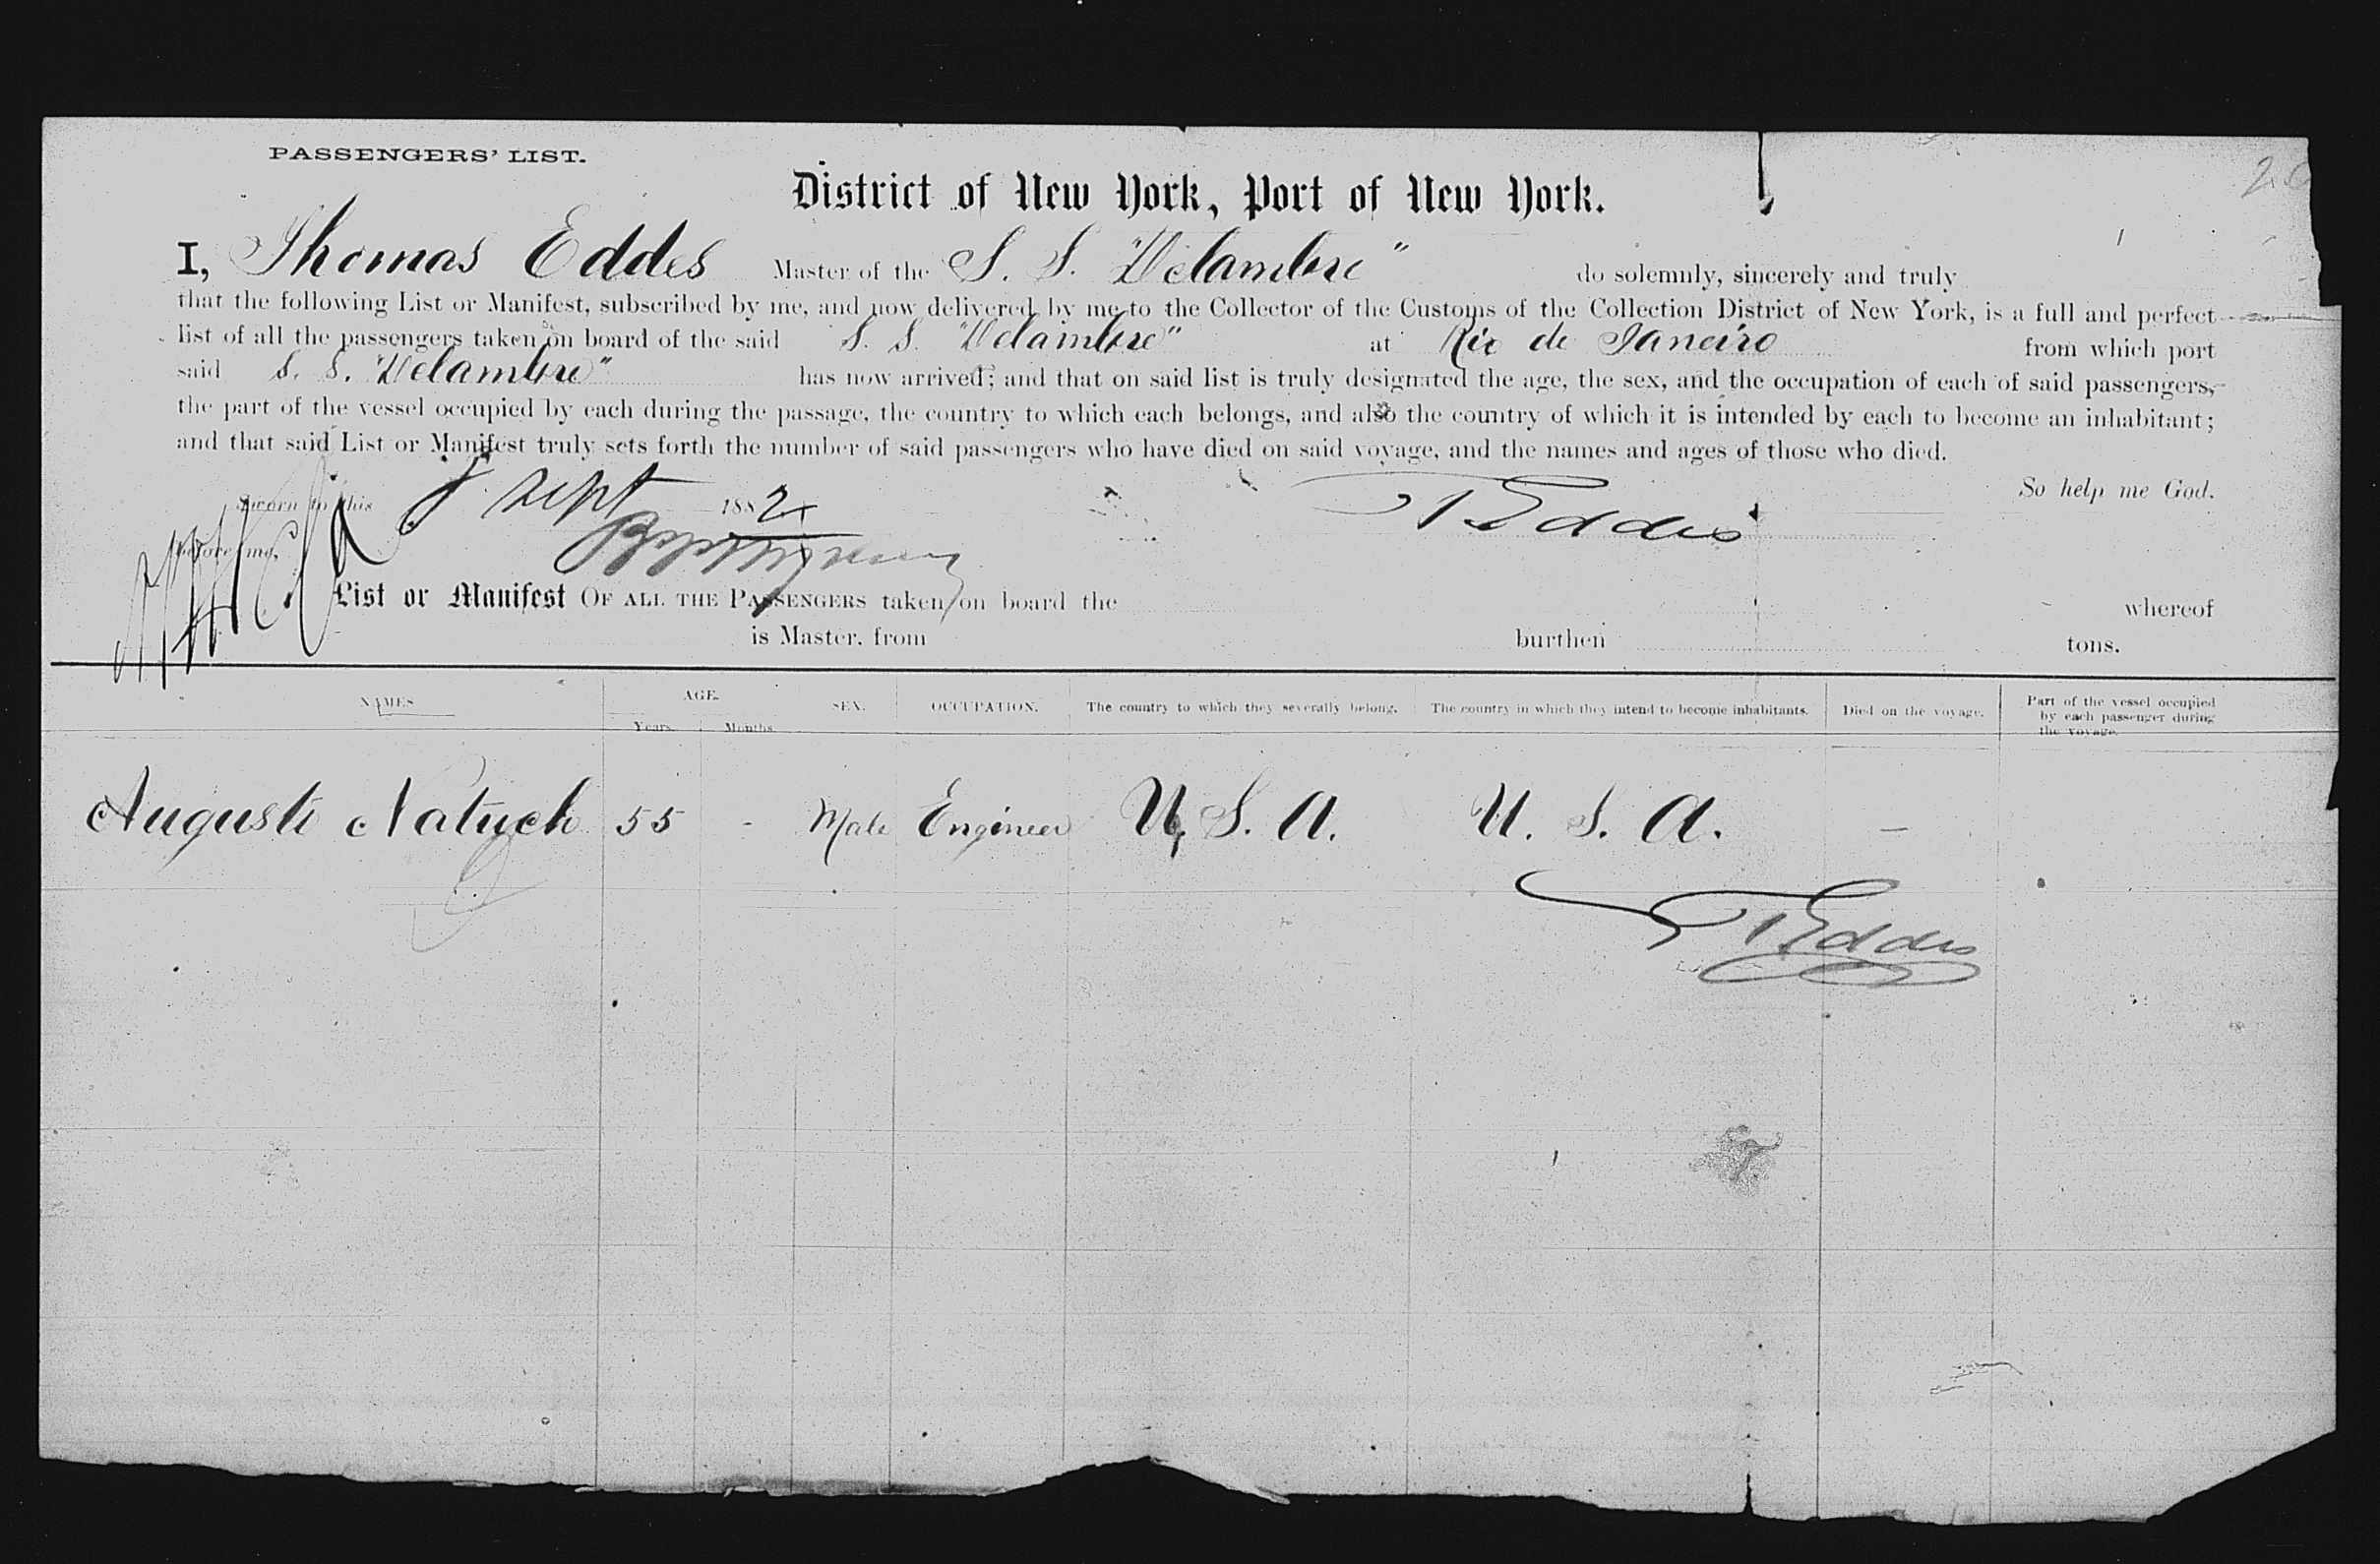 PASSENGERS' LIST.
District of New York, Port of New York.
I, Thomas Eddes Master of the S. S. "Delambre" do solemnly, sincerely and truly
that the following List or Manifest, subscribed by me, and now delivered by me to the Collector of the Customs of the Collection District of New York, is a full and perfect
list of all the passengers taken on board of the said S. S. "Delambre" at Rio de Janeiro from which port
said S. S. "Delambre" has now arrived; and that on said list is truly designated the age, the sex, and the occupation of each of said passengers,
the part of the vessel occupied by each during the passage, the country to which each belongs, and also the country of which it is intended by each to become an inhabitant;
and that said List or Manifest truly sets forth the number of said passengers who have died on said voyage, and the names and ages of those who died.
So help me God.
Sworn to this 8 Sept 1882
T Eddes
before me,
List or Manifest OF ALL THE PASSENGERS taken on board the whereof
is Master, from burthen tons.
NAMES AGE. Years. Months. SEX. OCCUPATION. The country to which they severally belong. The country in which they intend to become inhabitants. Died on the voyage. Part of the vessel occupied by each passenger during the voyage.
Auguste Natuch 55 - Male Engineer U. S. A. U. S. A. —
T Eddes